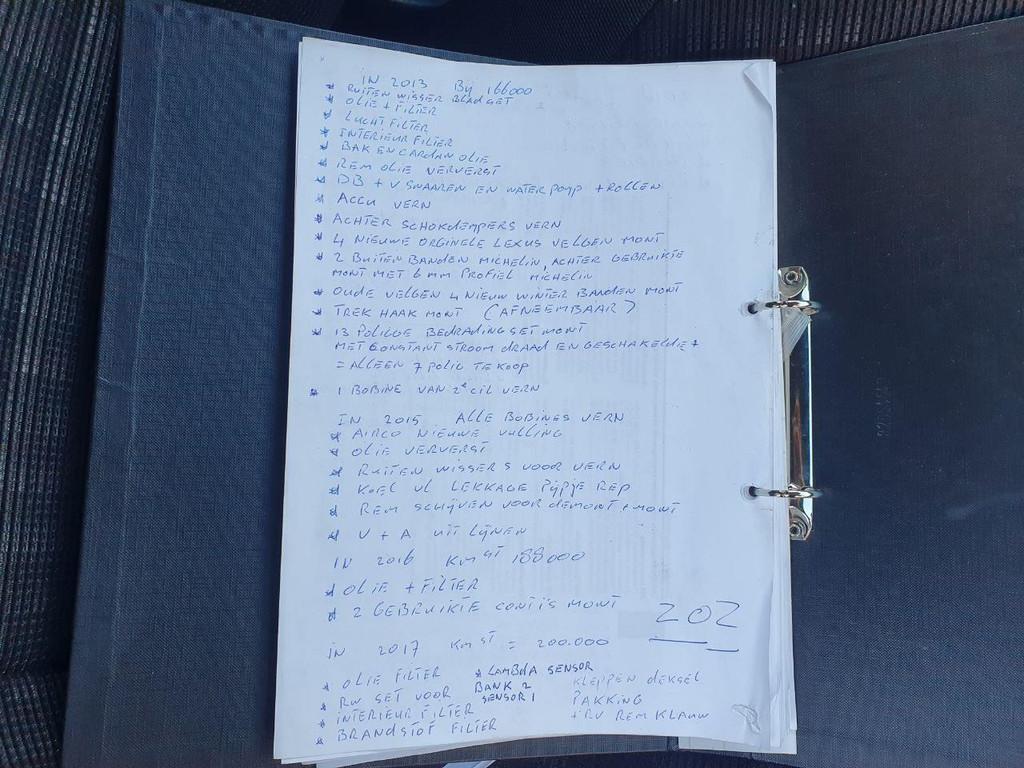 IN 2013 Bij 166000
* RUITEN WISSER BLAD SET
* OLIE + FILTER
* LUCHT FILTER
* INTERIEUR FILTER
* BAK EN CARDAN OLIE
* REM OLIE VERVERST
* DB + V SNAAREN EN WATER POMP + ROLLEN
* ACCU VERN
* ACHTER SCHOKDEMPERS VERN
* 4 NIEUWE ORGINELE LEXUS VELGEN MONT
* 2 BUITEN BANDEN MICHELIN, ACHTER GEBRUIKTE
MONT MET 6 MM PROFIEL MICHELIN
* OUDE VELGEN 4 NIEUW WINTER BANDEN MONT
* TREK HAAK MONT (AFNEEMBAAR)
* 13 POLIGE BEDRADING SET MONT
MET CONSTANT STROOM DRAAD EN GESCHAKELDE +
= ALLEEN 7 POLIG TE KOOP
* 1 BOBINE VAN 2e CIL VERN
IN 2015 ALLE BOBINES VERN
* AIRCO NIEUWE VULLING
* OLIE VERVERST
* RUITEN WISSERS VOOR VERN
* KOEL VL LEKKAGE PIJPJE REP
* REM SCHIJVEN VOOR DEMONT + MONT
* V + A UIT LIJNEN
IN 2016 KM ST 188000
* OLIE + FILTER
* 2 GEBRUIKTE CONTI'S MONT
ZOZ
IN 2017 KM ST = 200.000
* OLIE FILTER
* RW SET VOOR
* INTERIEUR FILTER
* BRANDSTOF FILTER
* LAMBDA SENSOR
BANK 2
SENSOR 1
KLEPPEN DEKSEL
PAKKING
+ RV REM KLAUW